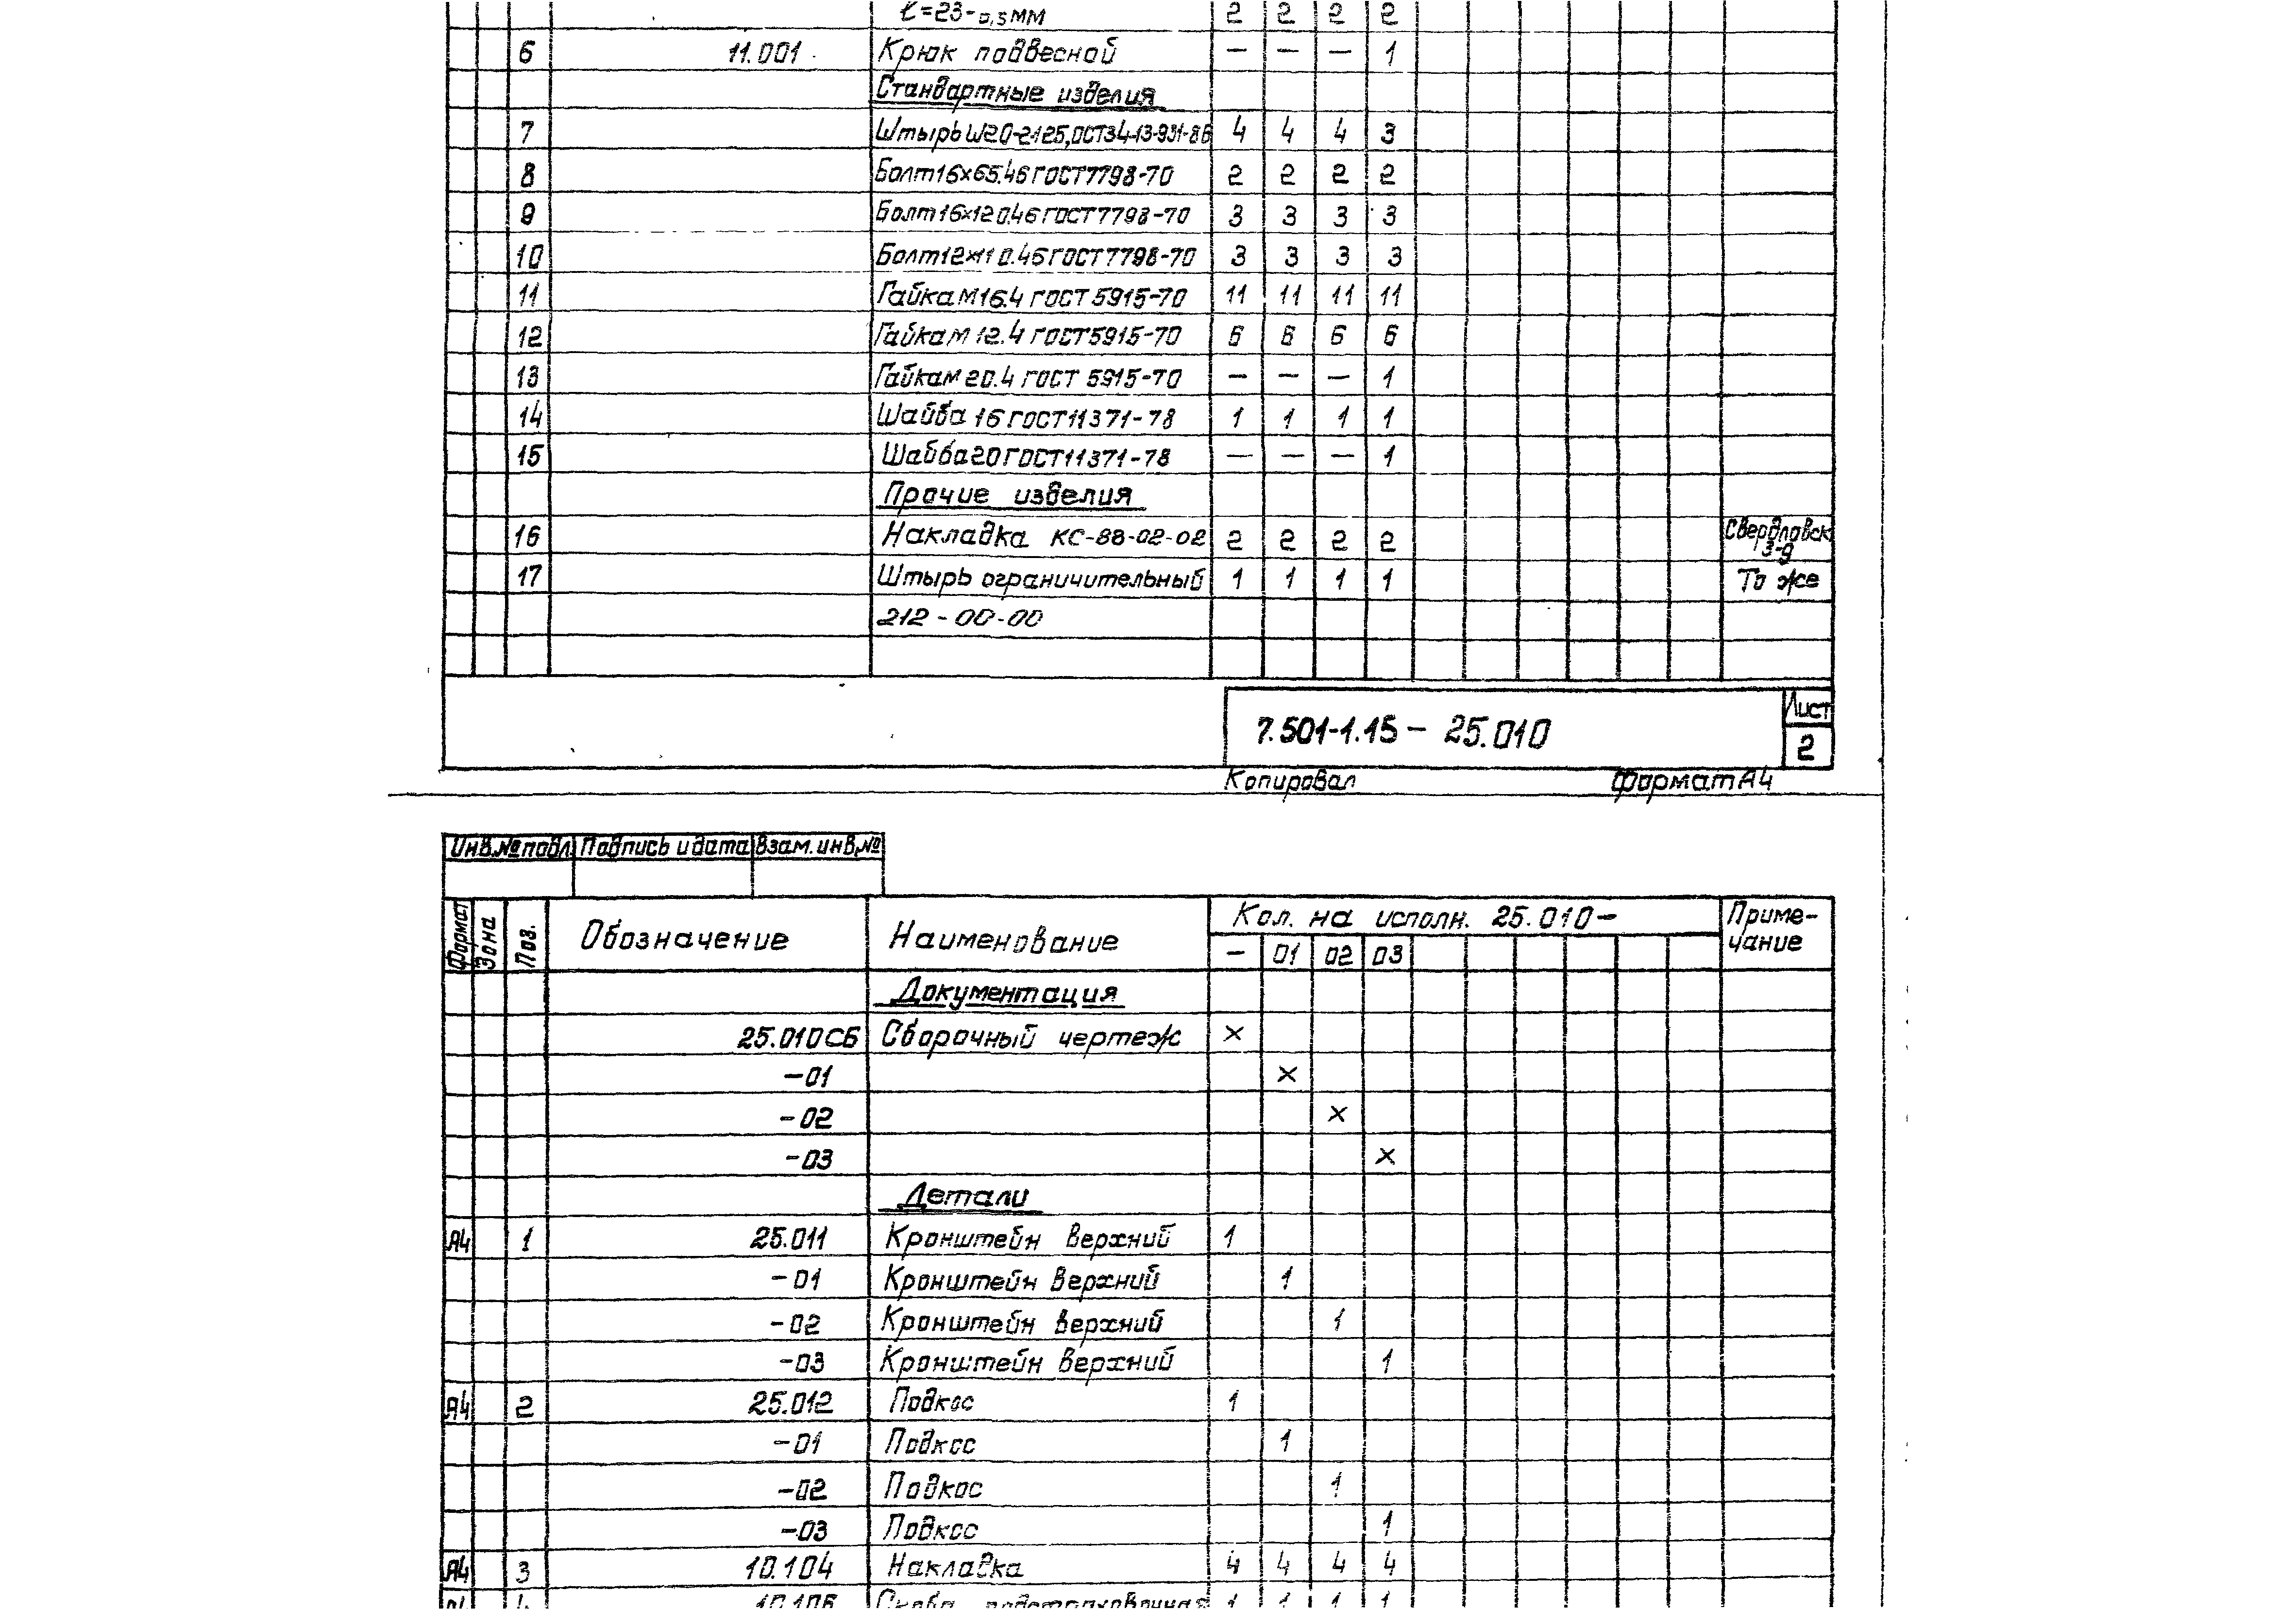 ℓ=23-0,5мм 2 2 2 2
6 11.001 Крюк подвесной — — — 1
Стандартные изделия
7 Штырь Ш20-2125, ОСТ34-13-931-86 4 4 4 3
8 Болт16×65.46ГОСТ7798-70 2 2 2 2
9 Болт16×120.46ГОСТ7798-70 3 3 3 3
10 Болт12×110.46ГОСТ7798-70 3 3 3 3
11 Гайка М16.4 ГОСТ 5915-70 11 11 11 11
12 Гайка М 12.4 ГОСТ5915-70 6 6 6 6
13 Гайка М 20.4 ГОСТ 5915-70 — — — 1
14 Шайба 16 ГОСТ11371-78 1 1 1 1
15 Шайба20 ГОСТ11371-78 — — — 1
Прочие изделия
16 Накладка КС-88-02-02 2 2 2 2 Свердловск з-д
17 Штырь ограничительный 1 1 1 1 То же
212-00-00
7.501-1.15 — 25.010 Лист
2
Копировал Формат А4
Инв.№подл. Подпись и дата Взам. инв.№
Формат Зона Поз. Обозначение Наименование Кол. на исполн. 25.010— Приме-
чание
— 01 02 03
Документация
25.010СБ Сборочный чертеж ×
-01 ×
-02 ×
-03 ×
Детали
А4 1 25.011 Кронштейн верхний 1
-01 Кронштейн верхний 1
-02 Кронштейн верхний 1
-03 Кронштейн верхний 1
А4 2 25.012 Подкос 1
-01 Подкос 1
-02 Подкос 1
-03 Подкос 1
А4 3 10.104 Накладка 4 4 4 4
Скоба 1 1 1 1